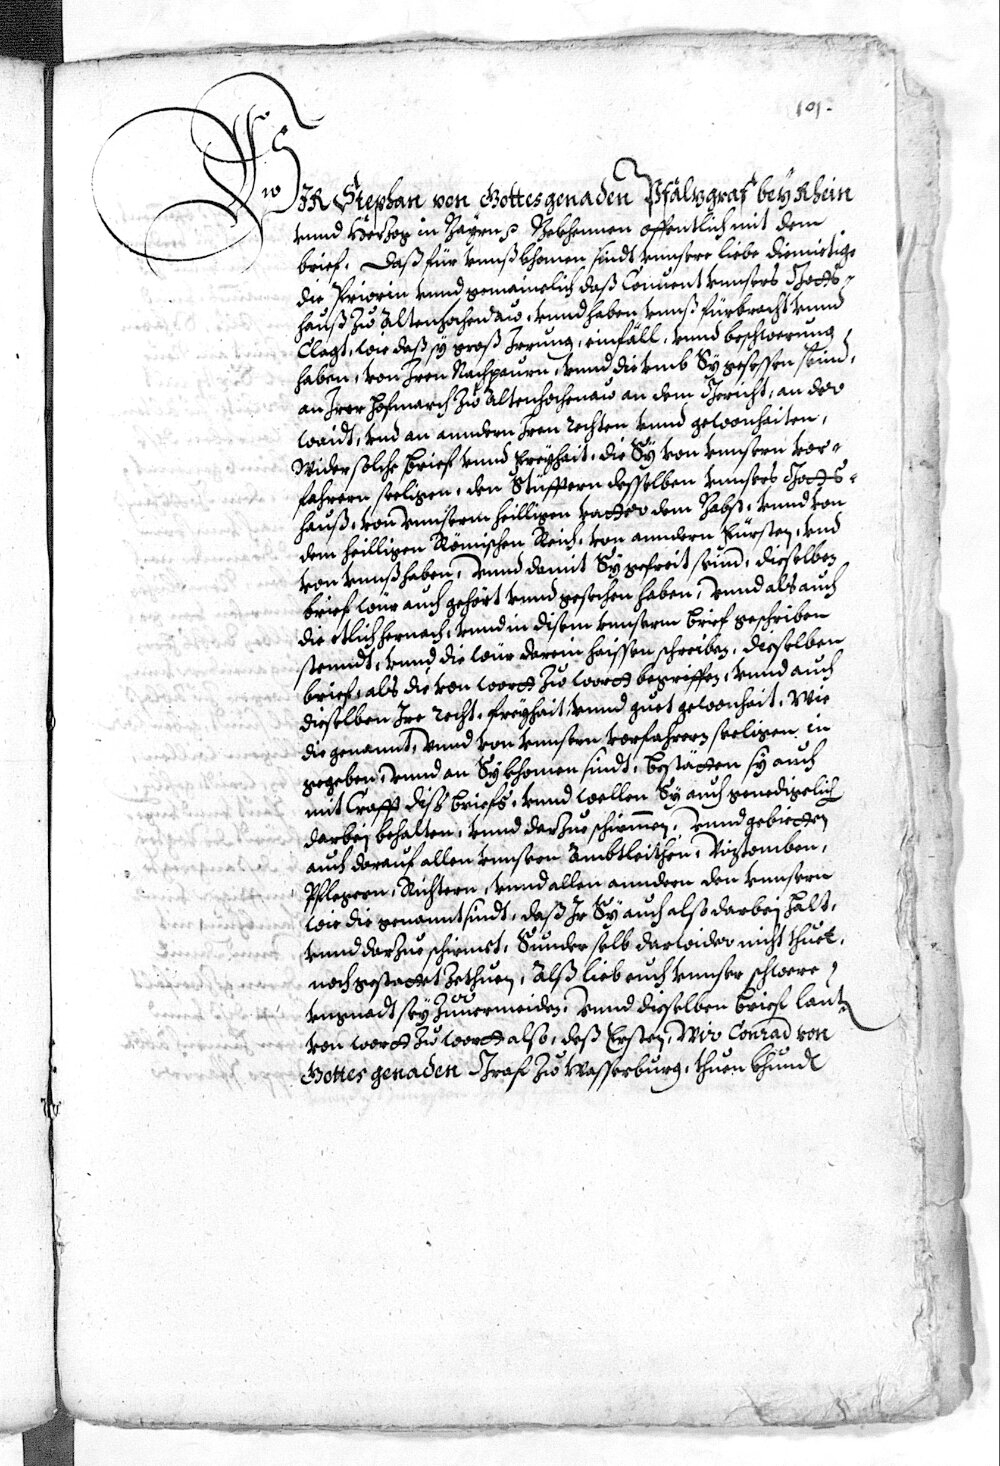 101.
WIR Stephan von Gottes genaden Pfalzgraf bey Rhein
vnnd Herzog in Bayrn etc. Bekhennen offentlich mit dem
brief. Daß für vnnß khomen sindt vnnsere liebe diemietige
die Priorin vnnd gemainclich daß Conuent vnnsers Gotts¬
hauß Zu Altenhochenaw, vnnd haben vnnß fürbracht vnnd
Clagt, wie daß sy groß Irrung, einfäll, vnnd beschwerung
haben, von Iren Nachpaurn, vnnd die vmb Sy gesessen seind,
an Irer hofmarch Zu Altenhochenaw an dem Gericht, an der
waidt, vnd an anndern Iren rechten vnnd gewonhaiten,
Wider solche brief vnnd freyhait, die Sy von vnnsern vor¬
fahrern seeligen, den Stüfftern desselben vnnsers Gotts¬
hauß, von vnnserm heilligen vatter dem Pabst, vnnd von
dem heilligen Römischen Reich, von anndern Fürsten, vnd
von vnnß haben, vnnd damit Sy gefreit seind, dieselben
brief wür auch gehört vnnd gesechen haben, vnnd als auch
die ettlich hernach, vnnd in disem vnnserm brief geschriben
stenndt, vnnd die wür darein haissen schreiben, dieselben
brief, als die von wortt Zu wortt begriffen, vnnd auch
dieselben Ire recht, freyhait, vnnd guet gewonhait, Wie
die genannt, vnnd von vnnsern vorfahrern seeligen in
gegeben, vnnd an Sy khomen sindt, bestätten sy auch
mit Crafft diß briefs, vnnd wellen Sy auch genedigelich
darbej behalten, vnnd darzue schirmen, vnnd gebietten
auch darauf allen vnnsern Ambtleithen, Viztomben,
Pflegern, Richtern, vnnd allen anndern den vnnsern
wie die genannt sindt, daß Ir Sy auch also darbej halt,
vnnd darzue schirmet, Sunder selb darwider nicht thuet,
noch gestattet Zethuen, Alß lieb euch vnnser schwere
vngnadt sey Zuuermeiden, vnnd dieselben brief laut
von wortt Zu wortt also, deß Ersten, Wir Conrad von
Gottes genaden Graf Zu Wasserburg, thuen khundt